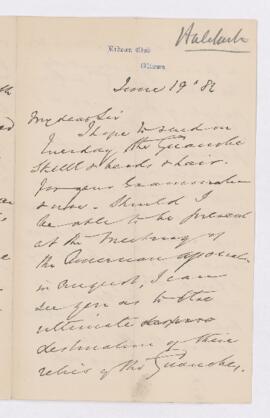 Rideau Club
Ottawa
June 19th 82
My dear Sir
I hope to send on
Tuesday the Guanche
Skull & beads & hair.
for your examination
& use. Should I
be able to be present
at the meeting of
the American
in August, I can
see you as to the
ultimate
destination of these
relics of the Guanches.